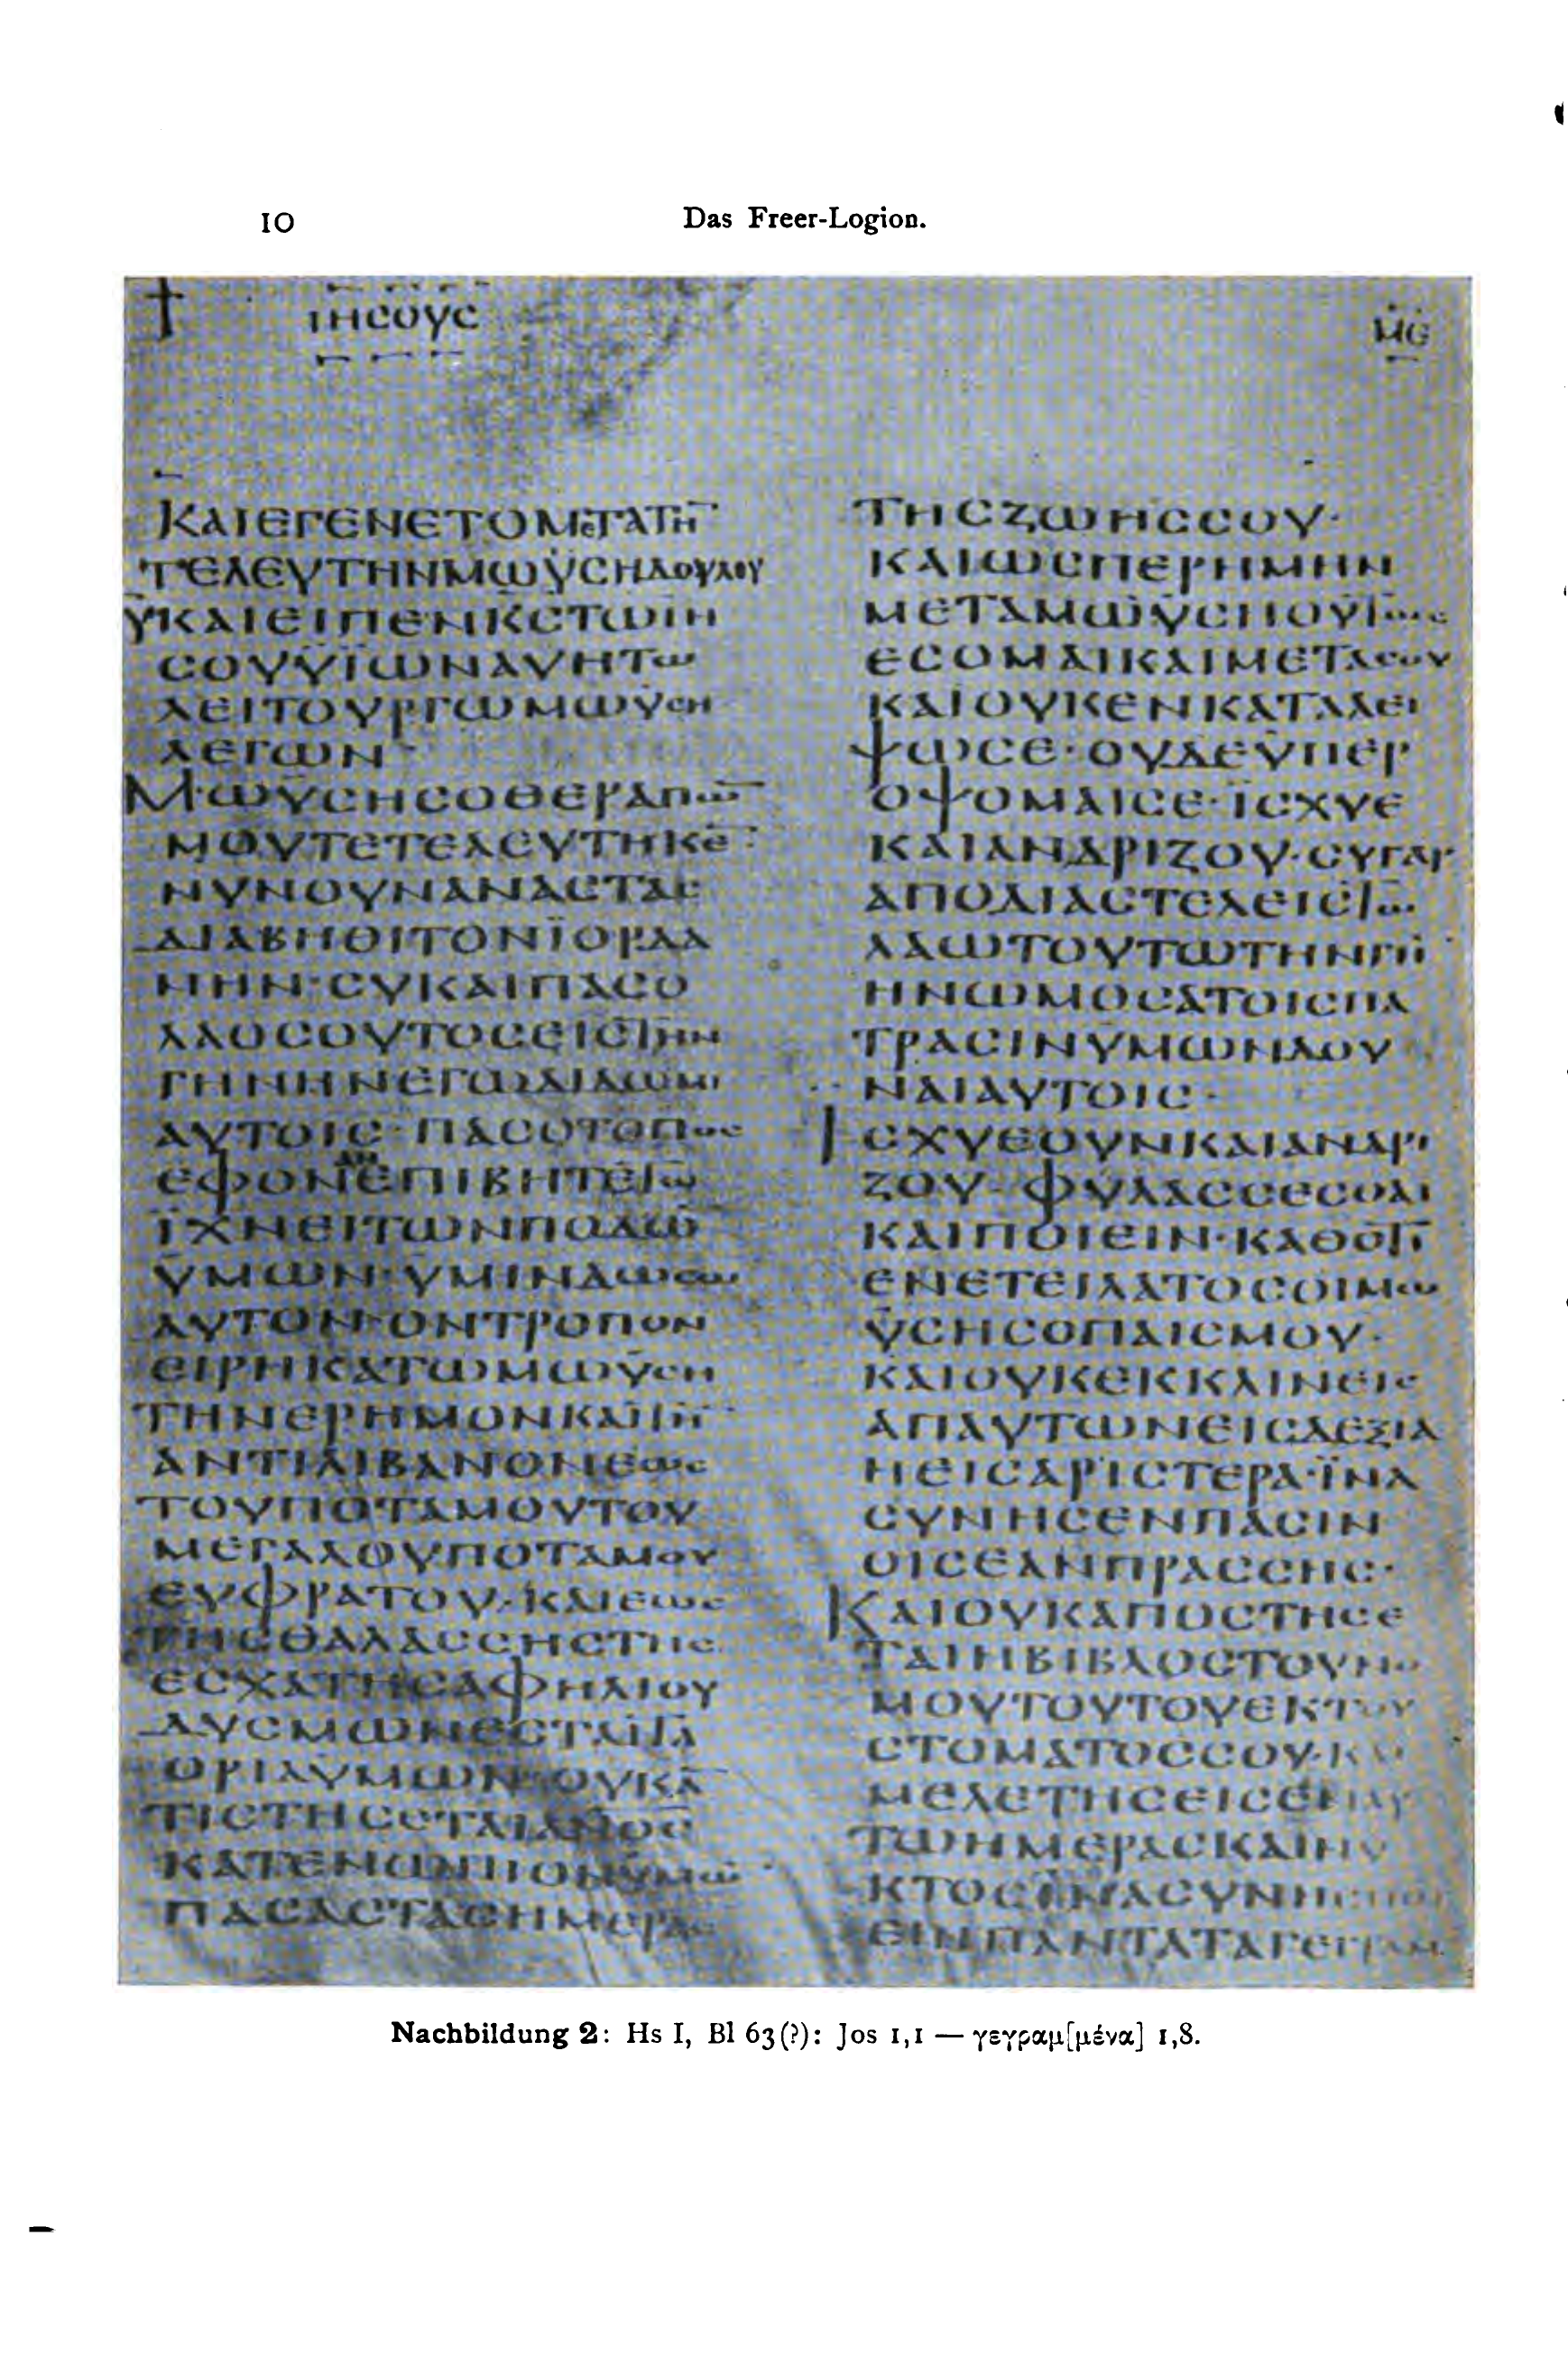 10 Das Freer-Logion.
ΙΗCΟΥC
ΜΕ
ΚΑΙΕΓΕΝΕΤΟΜΕΤΑΤΗ̅
ΤΕΛΕΥΤΗΝΜΩΫCΗΔΟΥΛΟΥ
ΫΚΑΙΕΙΠΕΝΚCΤΩΙΗ
CΟΥΫΪΩΝΑΥΗΤΩ
ΛΕΙΤΟΥΡΓΩΜΩΫCΗ
ΛΕΓΩΝ
ΜΩΫCΗCΟΘΕΡΑΠΩ̅
ΜΟΥΤΕΤΕΛΕΥΤΗΚΕ̅
ΝΥΝΟΥΝΑΝΑCΤΑC
ΔΙΑΒΗΘΙΤΟΝΪΟΡΔΑ
ΝΗΝ·CΥΚΑΙΠΑCΟ
ΛΑΟCΟΥΤΟCΕΙCΤΗΝ
ΓΗΝΗΝΕΓΩΔΙΔΩΜΙ
ΑΥΤΟΙC·ΠΑCΟΤΟΠΟC
ΕΦΟΝΕΠΙΒΗΤΕΤΩ
ΪΧΝΕΙΤΩΝΠΟΔΩ̅
ΫΜΩΝ·ΥΜΙΝΔΩCΩ
ΑΥΤΟΝ·ΟΝΤΡΟΠΟΝ
ΕΙΡΗΚΑΤΩΜΩΫCΗ
ΤΗΝΕΡΗΜΟΝΚΑΙΤΟ̅
ΑΝΤΙΛΙΒΑΝΟΝΕΩC
ΤΟΥΠΟΤΑΜΟΥΤΟΥ
ΜΕΓΑΛΟΥΠΟΤΑΜΟΥ
ΕΥΦΡΑΤΟΥ·ΚΑΙΕΩC
ΤΗCΘΑΛΑCCΗCΤΗC
ΕCΧΑΤΗCΑΦΗΛΙΟΥ
ΔΥCΜΩΝΕCΤΑΙΤΑ
ΟΡΙΑΥΜΩΝ·ΟΥΚΑ̅
ΤΙCΤΗCΕΤΑΙΑΝΟC
ΚΑΤΕΝΩΠΙΟΝΥΜΩ̅
ΠΑCΑCΤΑCΗΜΕΡΑC
ΤΗCΖΩΗCCΟΥ·
ΚΑΙΩCΠΕΡΗΜΗΝ
ΜΕΤΑΜΩΫCΗΟΥΤΩC
ΕCΟΜΑΙΚΑΙΜΕΤΑCΟΥ
ΚΑΙΟΥΚΕΝΚΑΤΑΛΕΙ
ΨΩCΕ·ΟΥΔΕΫΠΕΡ
ΟΨΟΜΑΙCΕ·ΪCΧΥΕ
ΚΑΙΑΝΔΡΙΖΟΥ·CΥΓΑΡ
ΑΠΟΔΙΑCΤΕΛΕΙCΤΩ
ΛΑΩΤΟΥΤΩΤΗΝΓΗ̅
ΗΝΩΜΟCΑΤΟΙCΠΑ
ΤΡΑCΙΝΥΜΩΝΔΟΥ
ΝΑΙΑΥΤΟΙC·
ΙCΧΥΕΟΥΝΚΑΙΑΝΔΡΙ
ΖΟΥ·ΦΥΛΑCCΕCΘΑΙ
ΚΑΙΠΟΙΕΙΝ·ΚΑΘΟΤΙ
ΕΝΕΤΕΙΛΑΤΟCΟΙΜΩ
ΫCΗCΟΠΑΙCΜΟΥ·
ΚΑΙΟΥΚΕΚΚΛΙΝΕΙC
ΑΠΑΥΤΩΝΕΙCΔΕΞΙΑ
ΗΕΙCΑΡΙCΤΕΡΑ·ΪΝΑ
CΥΝΗCΕΝΠΑCΙΝ
ΟΙCΕΑΝΠΡΑCCΗC·
ΚΑΙΟΥΚΑΠΟCΤΗCΕ
ΤΑΙΗΒΙΒΛΟCΤΟΥΝΟ
ΜΟΥΤΟΥΤΟΥΕΚΤΟΥ
CΤΟΜΑΤΟCCΟΥ·ΚΑΙ
ΜΕΛΕΤΗCΕΙCΕΝΑΥ
ΤΩΗΜΕΡΑCΚΑΙΝΥ
ΚΤΟCΪΝΑCΥΝΗCΠΟΙ
ΕΙΝΠΑΝΤΑΤΑΓΕΓΡΑΜ
Nachbildung 2: Hs I, Bl 63(?): Jos 1,1 — γεγραμ[μένα] 1,8.